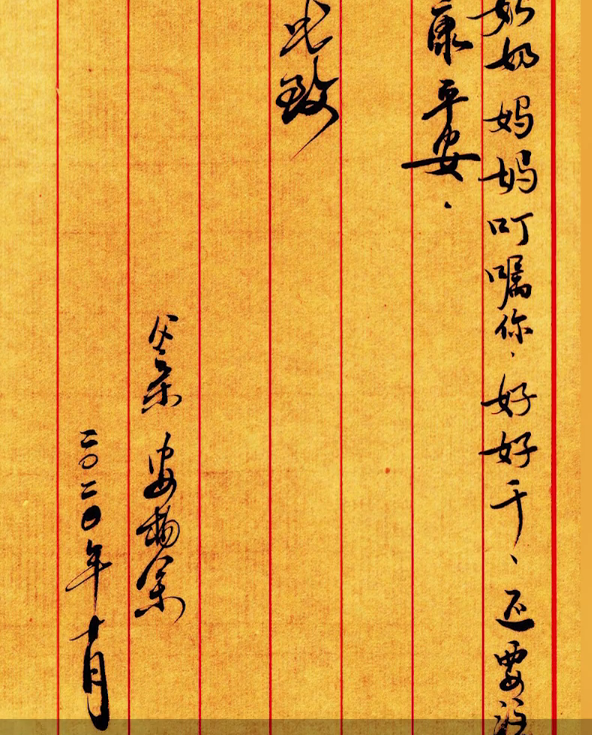 奶奶妈妈叮嘱你，好好干，还要注
康平安。
此致
父亲 安杨余
二〇二〇年十月